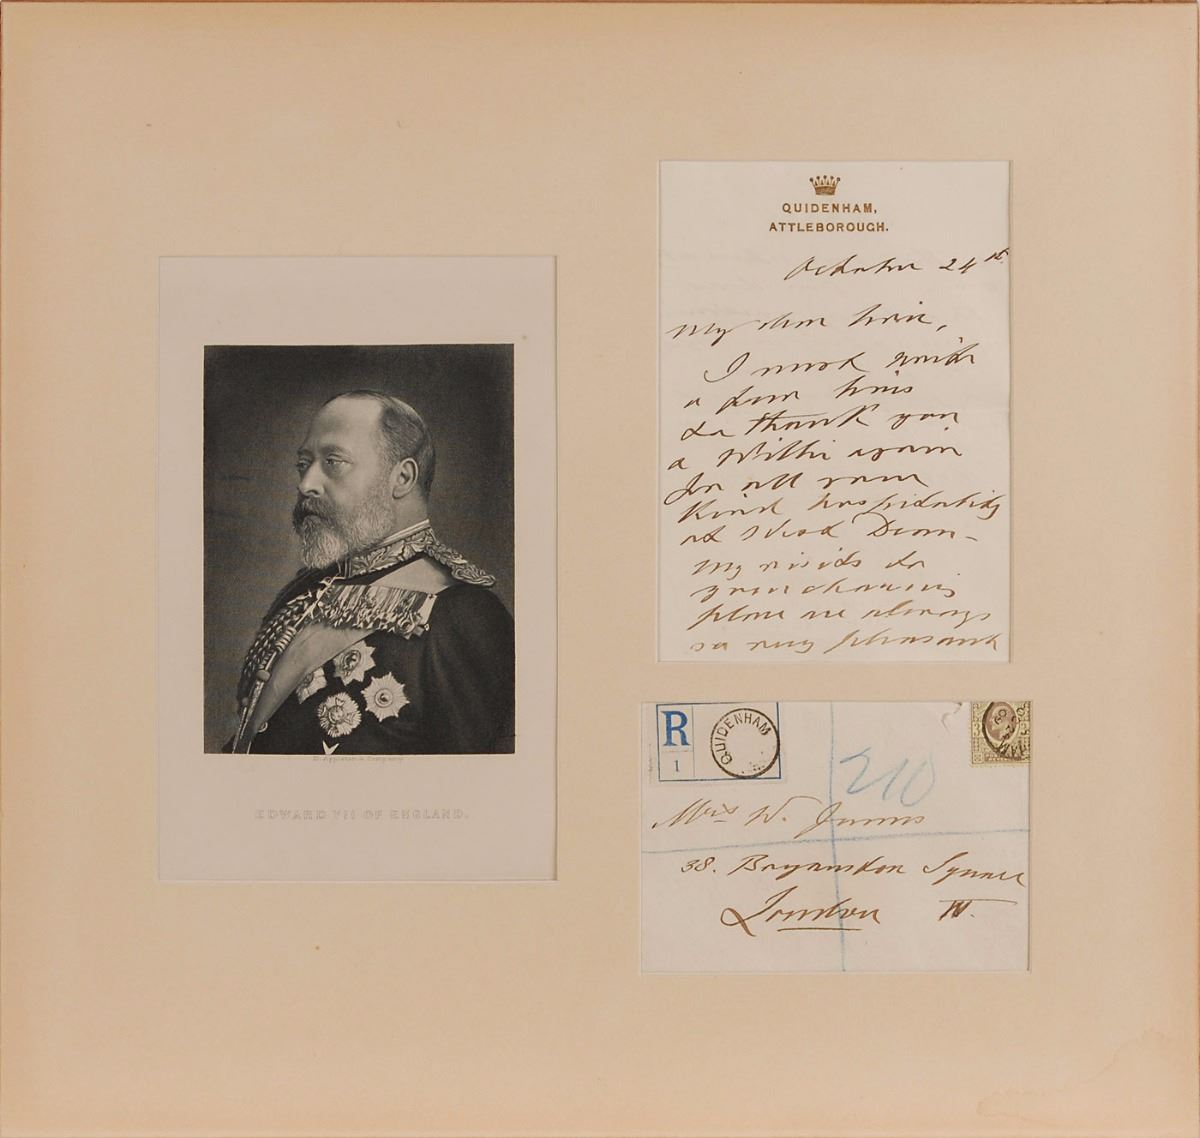 QUIDENHAM,
ATTLEBOROUGH.
October 24th
My dear
I must write
a few lines
to thank you
& Willie again
for all your
kind hospitality
at West Dean -
my visits to
your charming
place are always
so very pleasant
D. Appleton & Company
EDWARD VII OF ENGLAND.
R
1
QUIDENHAM
210
3
3
Mrs W. James
38. Bryanston Square
London W.